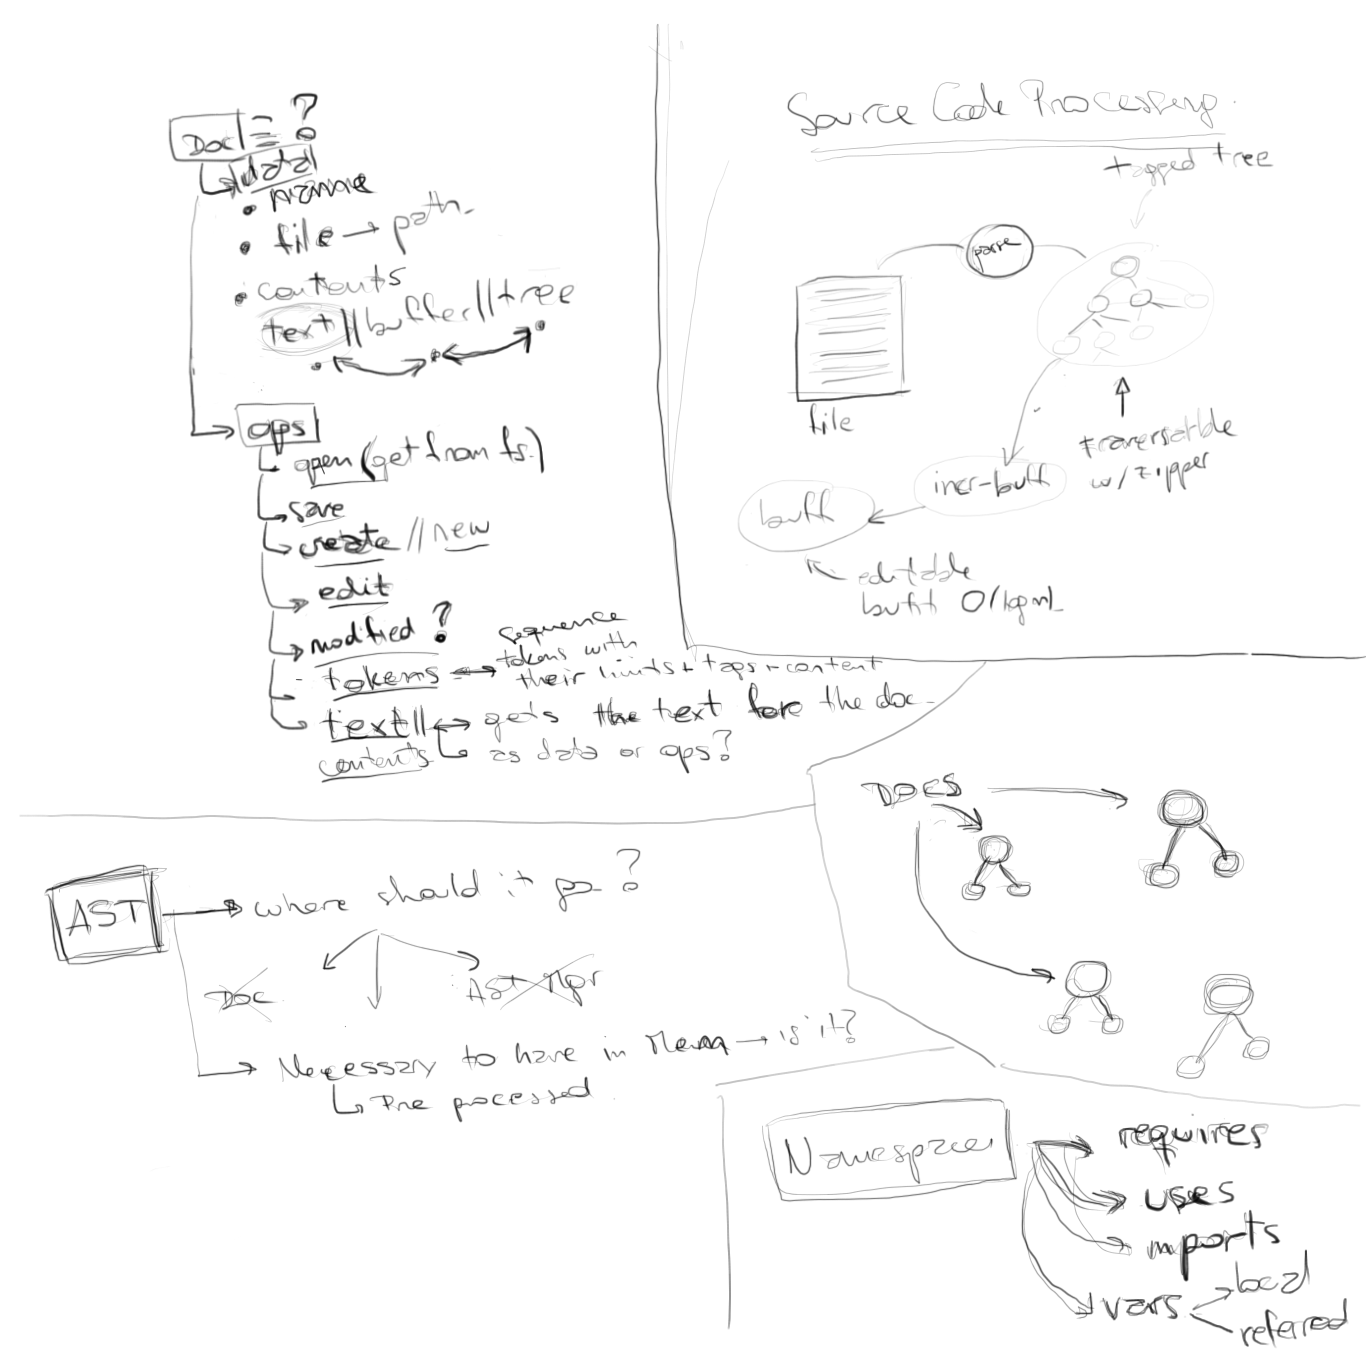 Doc = ?
data
• name
• file → path
• contents
text // buffer // tree
ops
open (get from fs.)
save
create // new
edit
modified ?
tokens ↔ sequence
tokens with
their limits + tags + content
text // ↔ gets the text fore the doc.
contents as data or ops?
Source Code Processing.
tagged tree
parse
file
traversable
w/ zipper
incr-buff
buff
editable
buff O(log n)
DOCS
AST → where should it go ?
Doc
AST Mgr
Necessary to have in Mem → is it?
Pre processed
Namespaces
requires
uses
imports
vars
local
referred